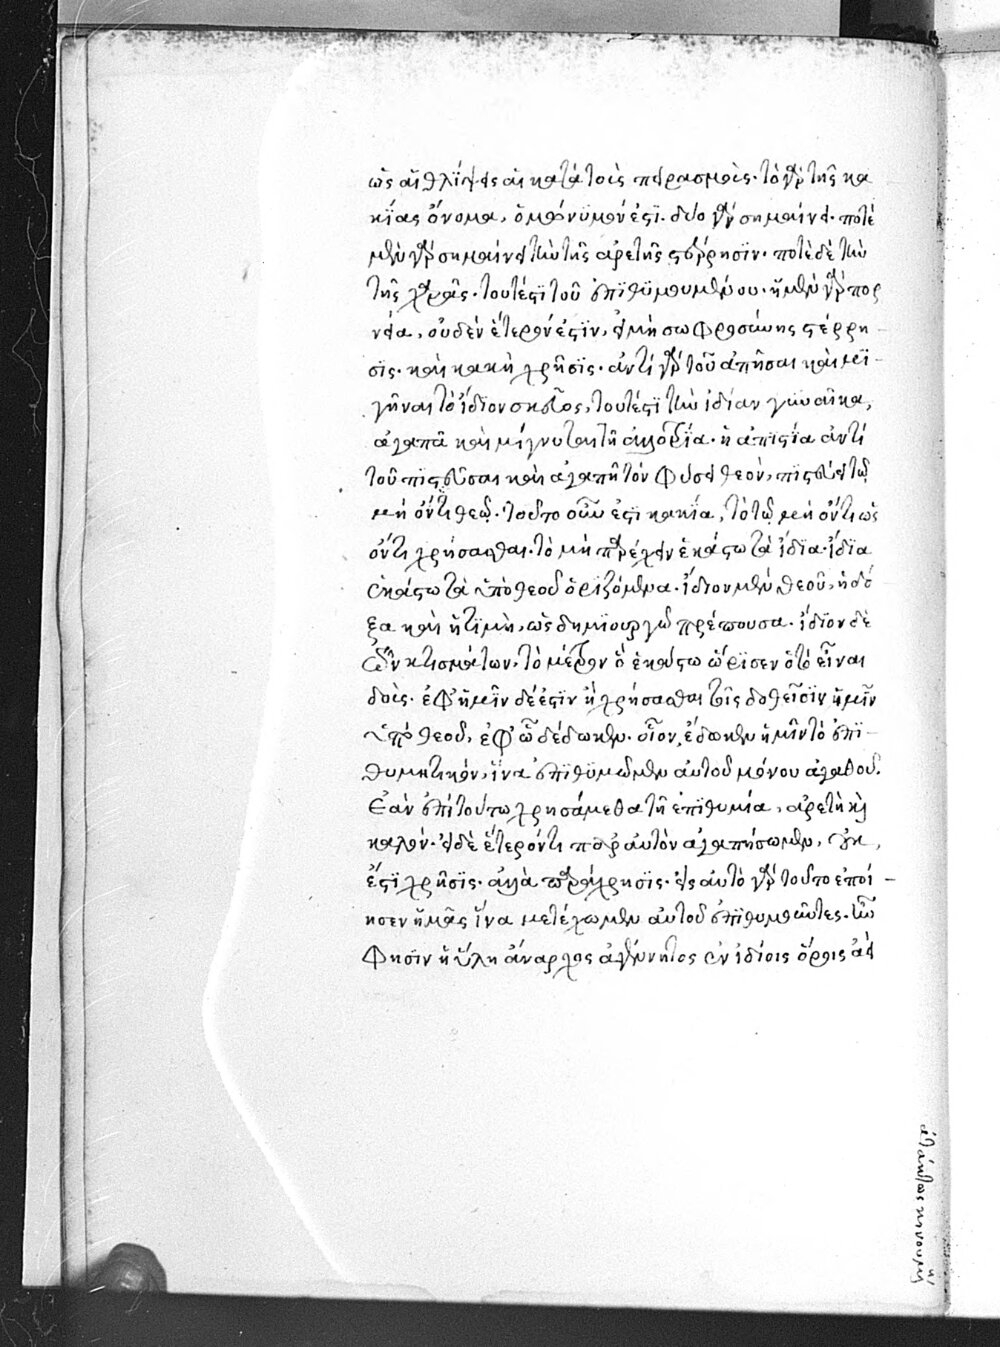 ὡς αἱ θλίψεις αἱ κατὰ τοῖς πειρασμοῖς· τὸ γὰρ τῆς κα
κίας ὄνομα, ὁμώνυμόν ἐστι. δύο γὰρ σημαίνει· ποτὲ
μὲν γὰρ σημαίνει τὴν τῆς ἀρετῆς στέρησιν· ποτὲ δὲ τὴν
τῆς χαρᾶς· τουτέστι τοῦ ἐπιθυμουμένου· ἡ μὲν γὰρ πορ
νεία, οὐδὲν ἕτερόν ἐστιν, εἰ μὴ σωφροσύνης στέρρη-
σις· καὶ κακὴ χρῆσις· ἀντὶ γὰρ τοῦ ἀγαπῆσαι καὶ μι-
γῆναι τὸ ἴδιον σκεῦος, τουτέστι τὴν ἰδίαν γυναῖκα,
ἀγαπᾶ καὶ μίγνυται τῆ ἀλλοτρία· ἡ ἀπιστία ἀντὶ
τοῦ πιστεῦσαι καὶ ἀγαπῆ τὸν φύσει θεὸν, πιστεύει τῶ
μὴ ὄντι θεῶ· τοῦτο οὖν ἐστι κακία, τὸ τῶ μὴ ὄντι ὡς
ὄντι χρήσασθαι· τὸ μὴ παρέχειν ἑκάστω τὰ ἴδια· ἴδια
ἑκάστω τὰ ὑπὸ θεοῦ ὁριζόμενα· ἴδιον μὲν θεοῦ, ἡ δό
ξα καὶ ἡ τιμὴ, ὡς δημιουργῶ πρέπουσα· ἴδιον δὲ
τῶν κτισμάτων, τὸ μέτρον ὃ ἑκάστω ὥρισεν ὁ τὸ εἶναι
δοὺς· ἐφ' ἡμῖν δέ ἐστιν ἡ χρήσασθαι τοῖς δοθεῖσιν ἡμῖν
ὑπὸ θεοῦ, ἐφ' ὧ δέδωκεν. οἷον, ἔδωκεν ἡμῖν τὸ ἐπι-
θυμητικόν, ἵνα ἐπιθυμῶμεν αὐτοῦ μόνου ἀγαθοῦ.
Ἐὰν ἐπὶ τούτω χρησάμεθα τῆ ἐπιθυμία, ἀρετὴ καὶ
καλόν· εἰ δὲ ἕτερόν τι παρ' αὐτὸν ἀγαπήσωμεν, οὐκ
ἔστι χρῆσις· ἀλλὰ παράχρησις· εἰς αὐτὸ γὰρ τοῦτο ἐποί-
ησεν ἡμᾶς ἵνα μετέχωμεν αὐτοῦ ἐπιθυμοῦντες. ἦν
φησὶν ἡ ὕλη ἄναρχος ἀγέννητος ἐν ἰδίοις ὅροις ἀεὶ